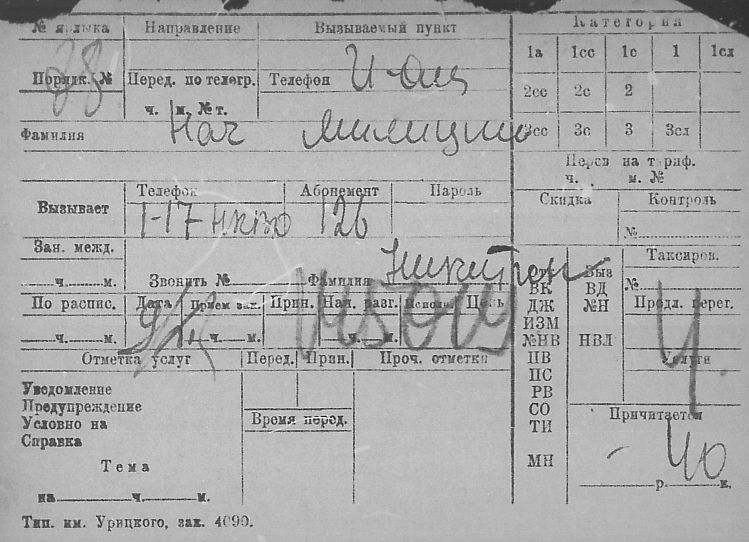 № ярлыка Направление Вызываемый пункт Категория
1а 1сс 1с 1 1сл
Порядк. № Перед. по телегр. Телефон
2сс 2с 2
ч. м. № т.
Фамилия Нач Милиции
3сс 3с 3 3сл
Перев на тариф.
ч. м. №
Телефон Абонемент Пароль
Скидка Контроль
Вызывает 1-17 НКВД 126
№
Зан. межд.
Таксиров.
ч. м. Звонить № Фамилия
Выз №
ВК ВД
По распис. Дата Прием зак. Прин. Нач. разг. Исполн. Цель
ДЖ №Н Продл. перег.
ИЗМ
ч. м. ч. м. ч. м.
№НВ НВЛ
Отметка услуг Перед. Прин. Проч. отметки
ПВ Услуги
ПС
Уведомление
РВ
Предупреждение
СО Причитается
Условно на Время перед.
ТИ
Справка
40
Тема
МН
р. к.
на ч. м.
Тип. им. Урицкого, зак. 4090.